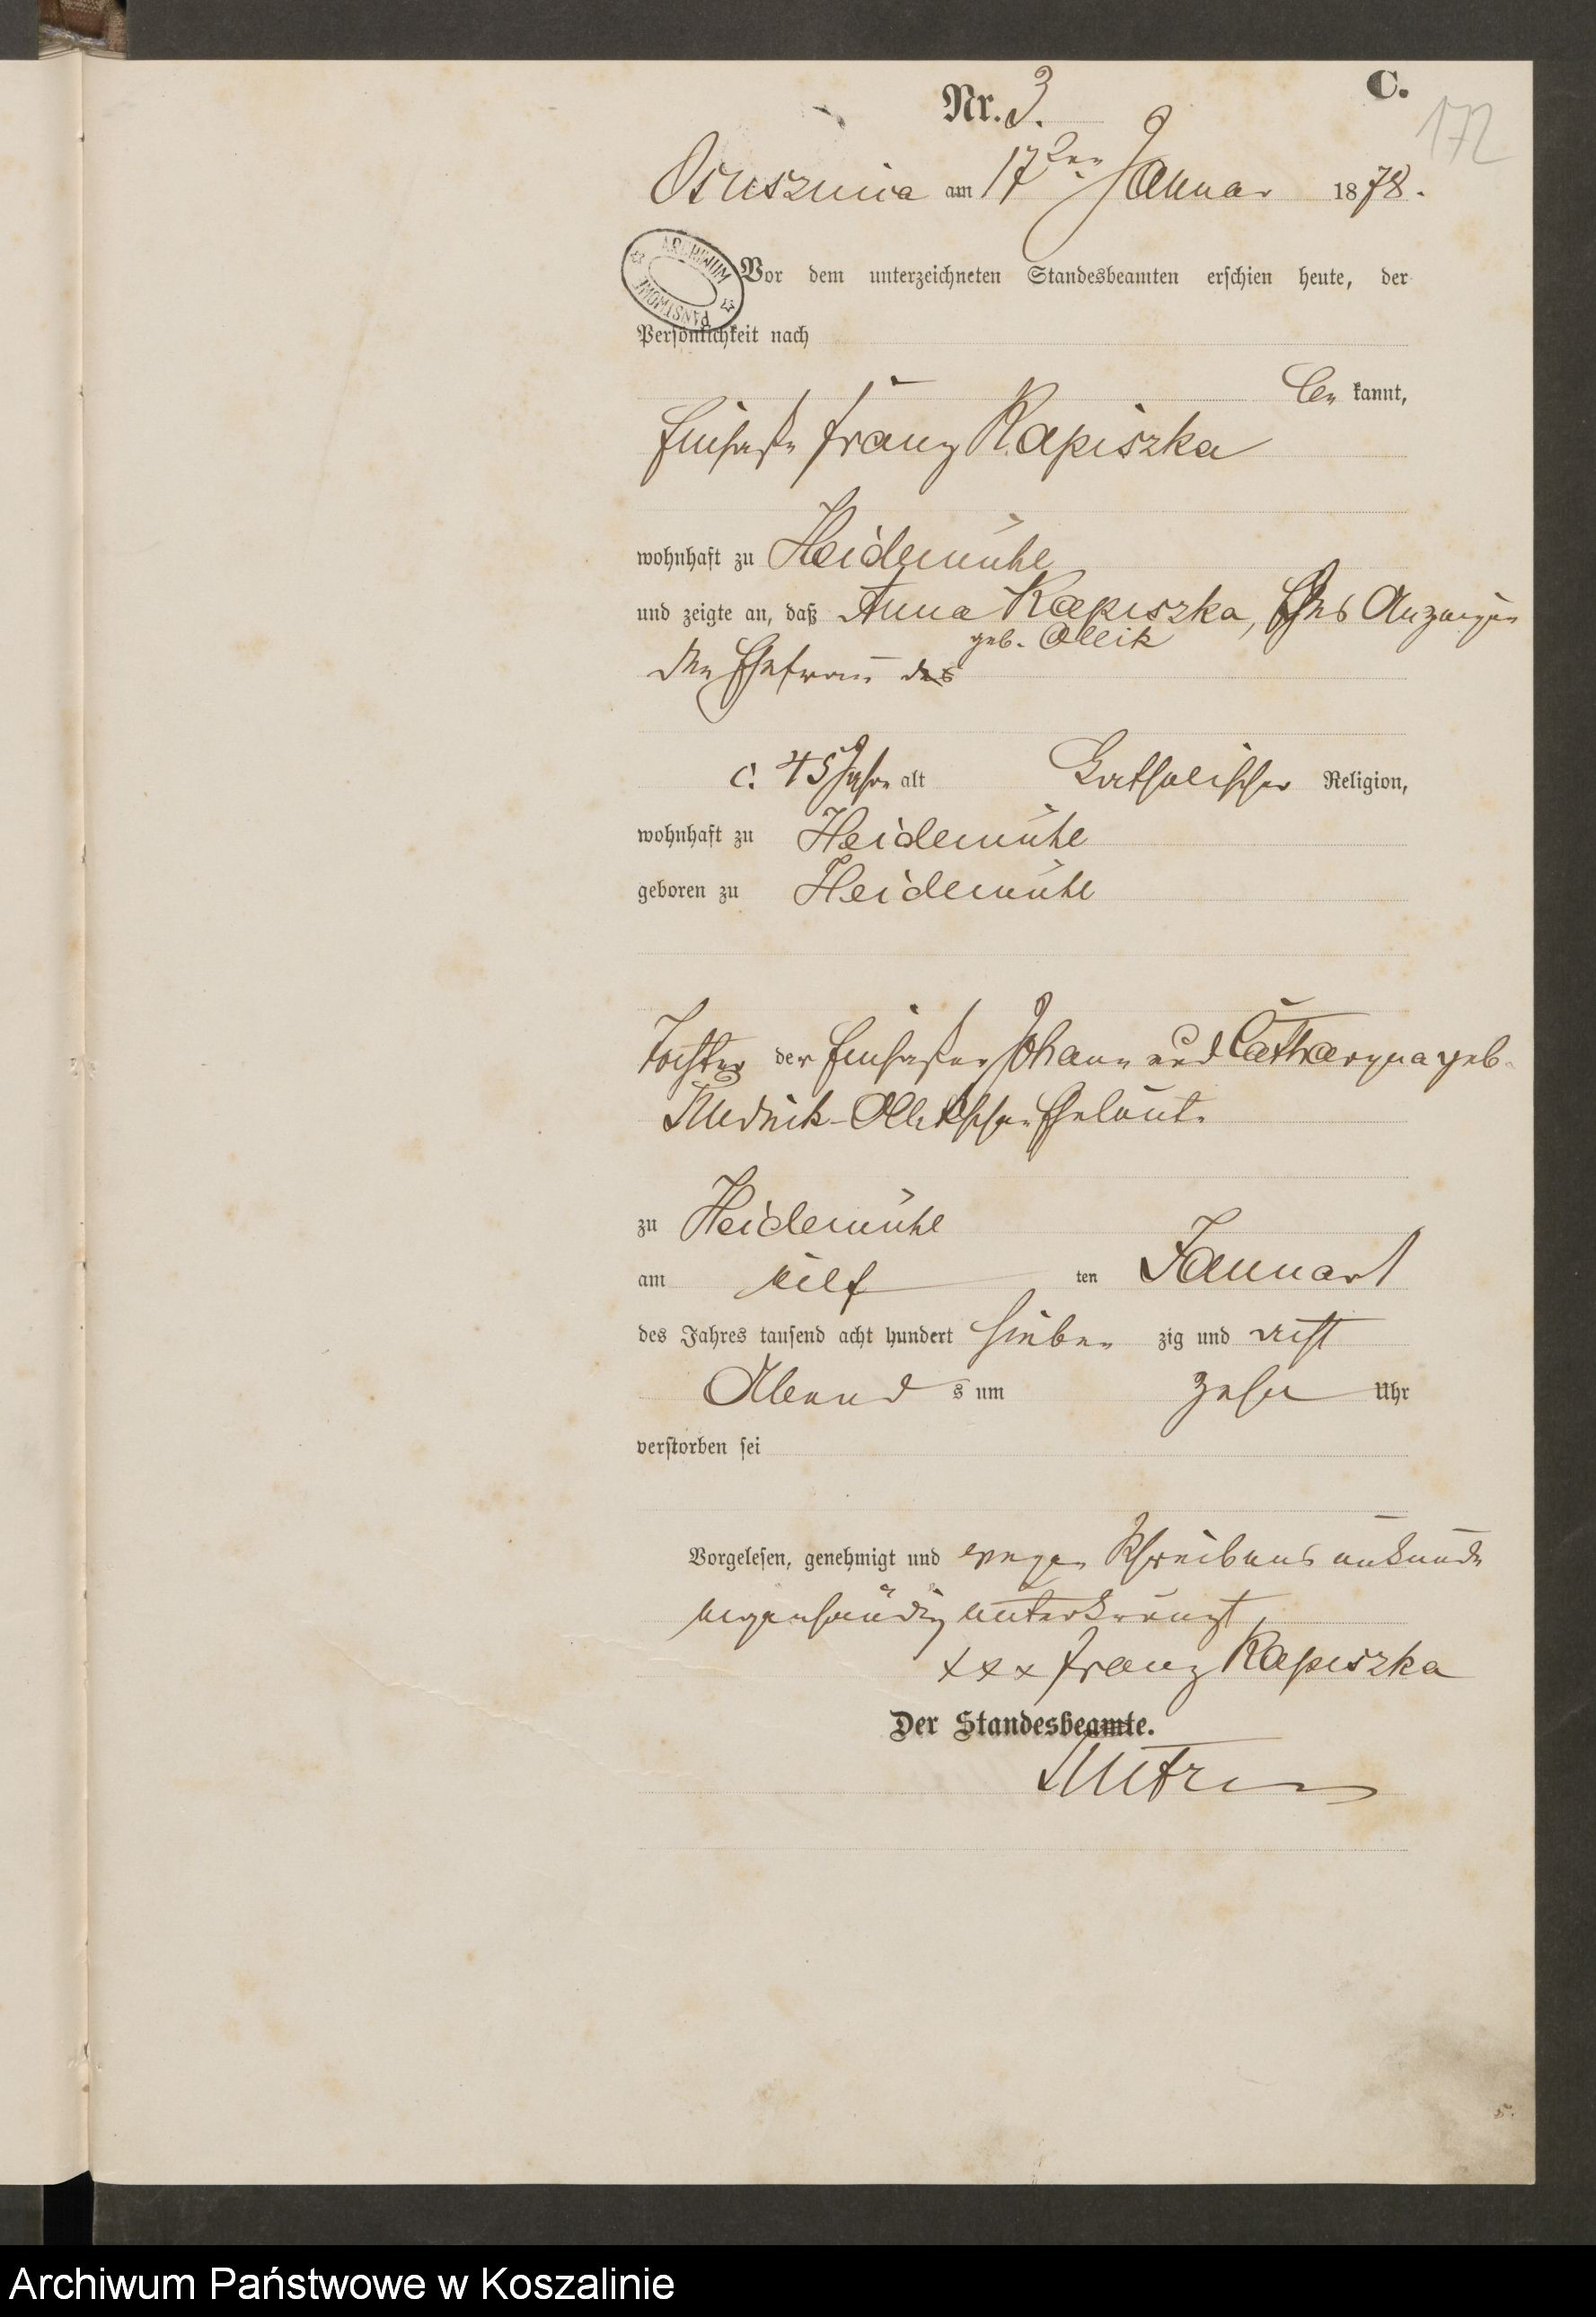 C.
Nr. 3.
172
Osusznica am 17ten Januar 1878.
ARCHIWUM PAŃSTWOWE
Vor dem unterzeichneten Standesbeamten erschien heute, der
Persönlichkeit nach
be kannt,
Einsaße Franz Kapiszka
wohnhaft zu Heidemühl
und zeigte an, daß Anna Kapiszka,
geb. Ollik
Ehefrau des
c. 45 Jahre alt Katholischer Religion,
wohnhaft zu Heidemühl
geboren zu Heidemühl
Tochter der Einsaßen Johann und Catharyna geb.
Eheleute
zu Heidemühl
am eilf ten Januar
des Jahres tausend acht hundert sieben zig und acht
Abend s um zehn Uhr
verstorben sei
Vorgelesen, genehmigt und wegen Schreibens unkunde
eigenhändig unterkreuzt,
xxx Franz Kapiszka
Der Standesbeamte.
Archiwum Państwowe w Koszalinie